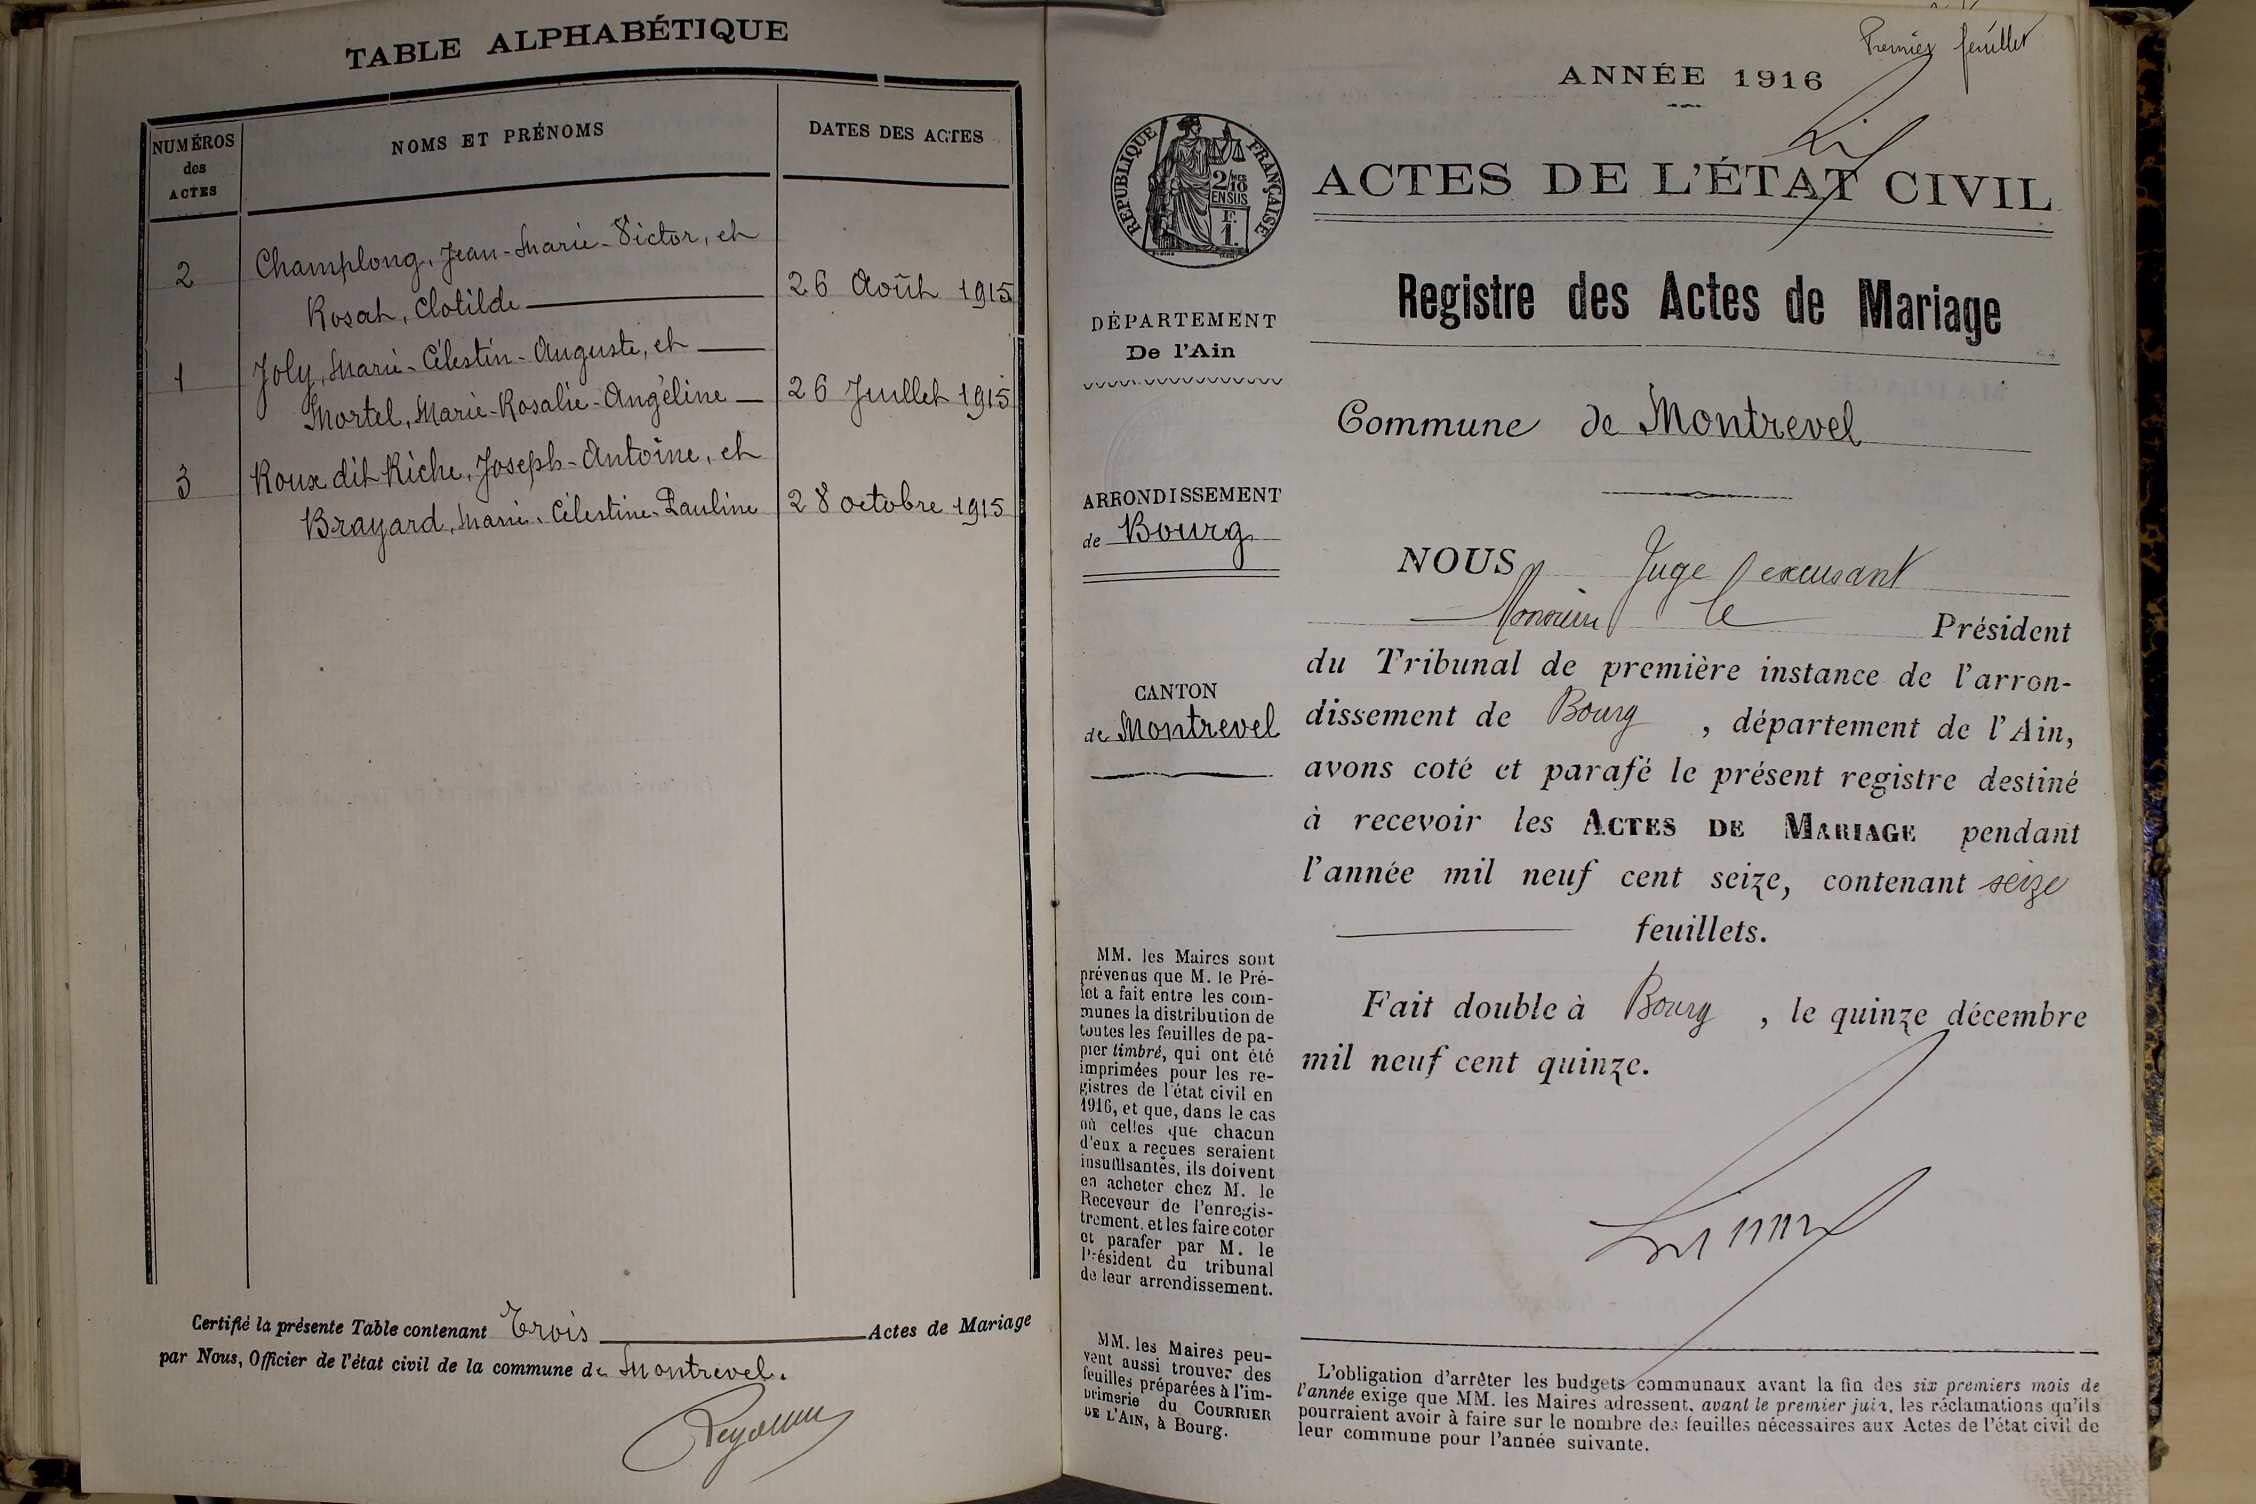 TABLE ALPHABÉTIQUE
NUMÉROS
des
ACTES
NOMS ET PRÉNOMS
DATES DES ACTES
2
Champlong, Jean-Marie-Victor, et
Rosat, Clotilde
26 Août 1915
1
Joly, Marie-Célestin-Auguste, et
Mortel, Marie-Rosalie-Angéline
26 Juillet 1915
3
Roux dit Riche, Joseph-Antoine, et
Brayard, Marie-Célestine-Pauline
28 octobre 1915
Certifié la présente Table contenant Trois Actes de Mariage
par Nous, Officier de l'état civil de la commune de Montrevel.
Premier feuillet
ANNÉE 1916
RÉPUBLIQUE FRANÇAISE
2/10
EN SUS
F.
1.
ACTES DE L'ÉTAT CIVIL
Registre des Actes de Mariage
DÉPARTEMENT
De l'Ain
Commune de Montrevel
ARRONDISSEMENT
de Bourg
CANTON
de Montrevel
NOUS Juge excusant
Monsieur le Président
du Tribunal de première instance de l'arron-
dissement de Bourg, département de l'Ain,
avons coté et parafé le présent registre destiné
à recevoir les ACTES DE MARIAGE pendant
l'année mil neuf cent seize, contenant seize
feuillets.
Fait double à Bourg, le quinze décembre
mil neuf cent quinze.
MM. les Maires sont
prévenus que M. le Pré-
fet a fait entre les com-
munes la distribution de
toutes les feuilles de pa-
pier timbré, qui ont été
imprimées pour les re-
gistres de l'état civil en
1916, et que, dans le cas
où celles que chacun
d'eux a reçues seraient
insuffisantes, ils doivent
en acheter chez M. le
Receveur de l'enregis-
trement, et les faire coter
et parafer par M. le
Président du tribunal
de leur arrondissement.
MM. les Maires peu-
vent aussi trouver des
feuilles préparées à l'im-
primerie du COURRIER
DE L'AIN, à Bourg.
L'obligation d'arrêter les budgets communaux avant la fin des six premiers mois de
l'année exige que MM. les Maires adressent, avant le premier juin, les réclamations qu'ils
pourraient avoir à faire sur le nombre des feuilles nécessaires aux Actes de l'état civil de
leur commune pour l'année suivante.